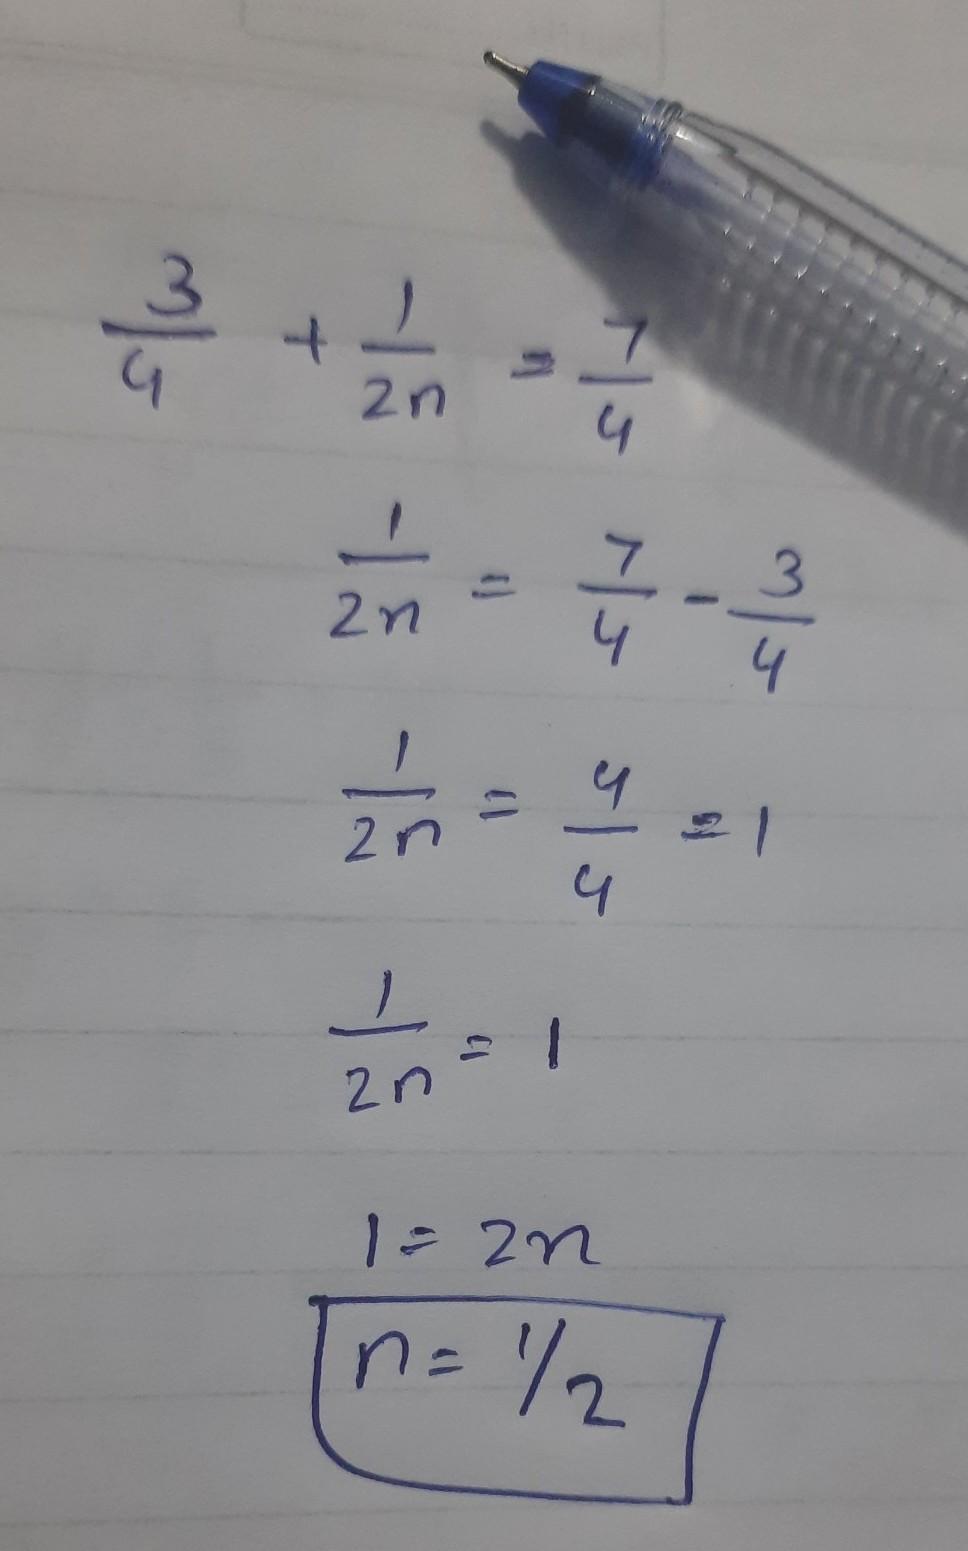 3/4 + 1/2n = 7/4
1/2n = 7/4 - 3/4
1/2n = 4/4 = 1
1/2n = 1
1 = 2n
n = 1/2